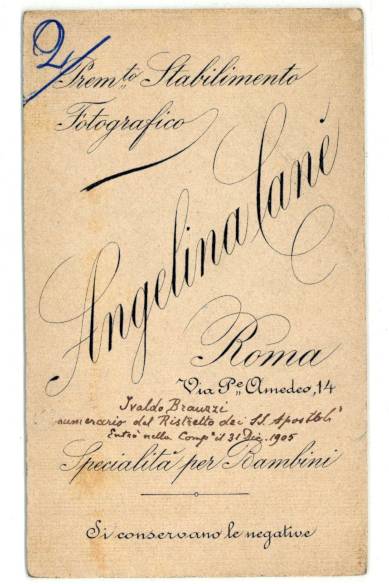 2/
Prem.to Stabilimento
Fotografico
Angelina Cané
Roma
Via P.e Amedeo, 14
Ivaldo Brauzzi
numerario del Ristretto dei SS. Apostoli
Entrò nella Comp.a il 31 Dic. 1905
Specialità per Bambini
Si conservano le negative